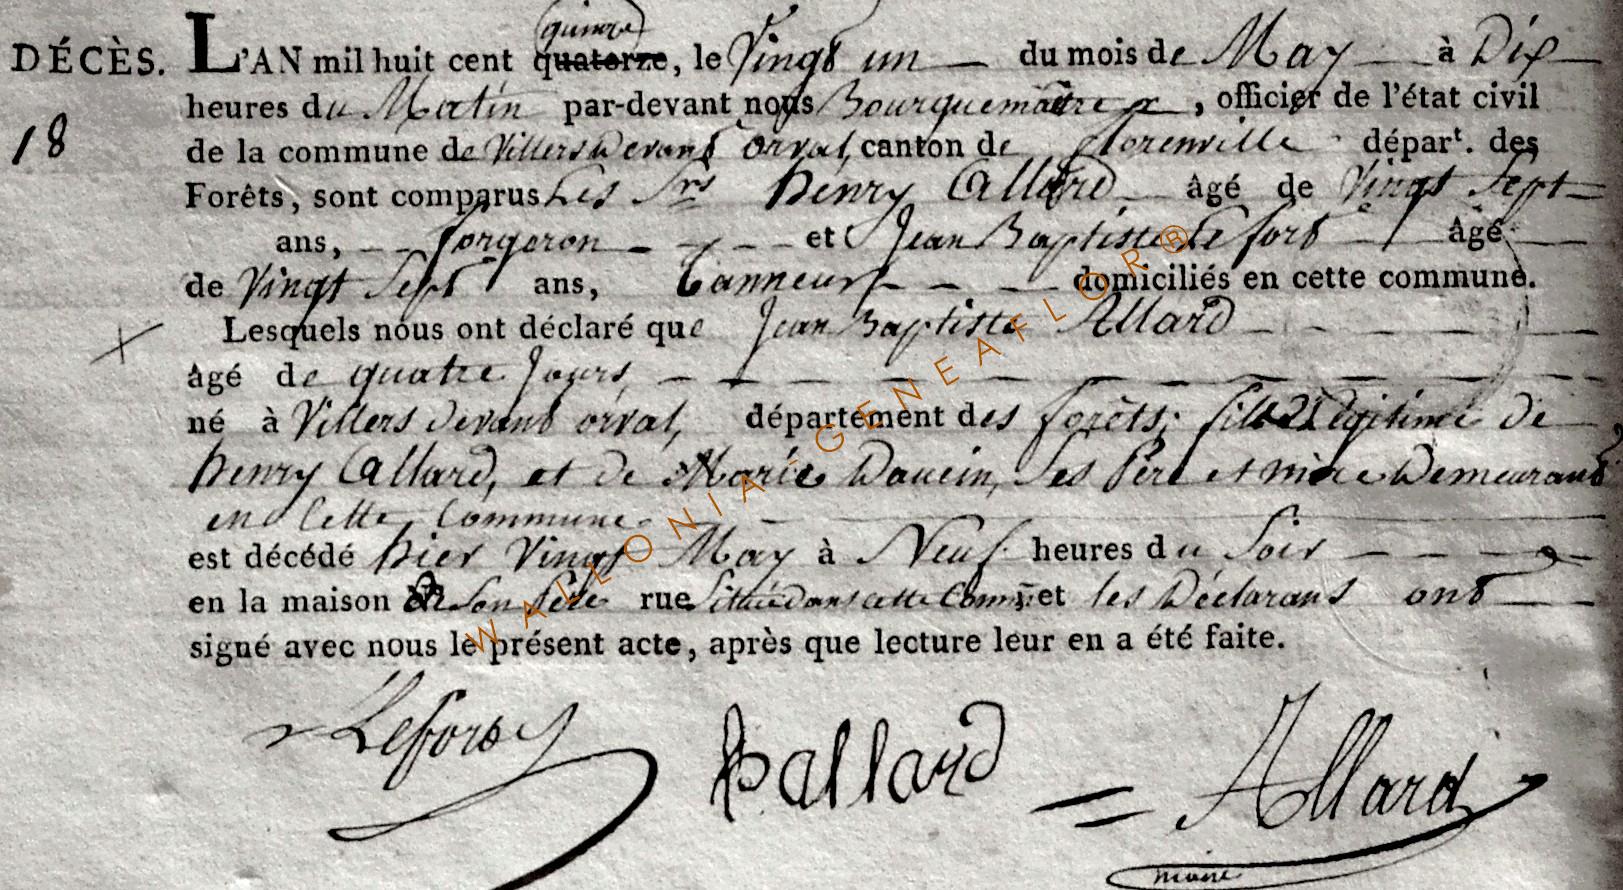 quinze
DÉCÈS. L'AN mil huit cent quatorze, le Vingt un du mois de May à Dix
heures du Matin par-devant nous Bourquemaitre, officier de l'état civil
18
de la commune de Villers devant orval, canton de florenville départ. des
Forêts, sont comparus Les Srs henry Allard âgé de Vingt Sept
ans, forgeron et Jean Baptiste Lefort âgé
de Vingt Sept ans, Tanneur domiciliés en cette commune.
Lesquels nous ont déclaré que Jean Baptiste Allard
âgé de quatre Jours
né à Villers devant orval, département des forêts, fils légitime de
henry Allard, et de Marie Daucin, Ses Père et mère Demeurant
en Cette Commune
est décédé hier Vingt May à Neuf heures du Soir
en la maison de Son Père rue Située dans cette Comm: et les Déclarans ont
signé avec nous le présent acte, après que lecture leur en a été faite.
WALLONIA-GENEAFLOR®
Lefort hallard = Allard
maire